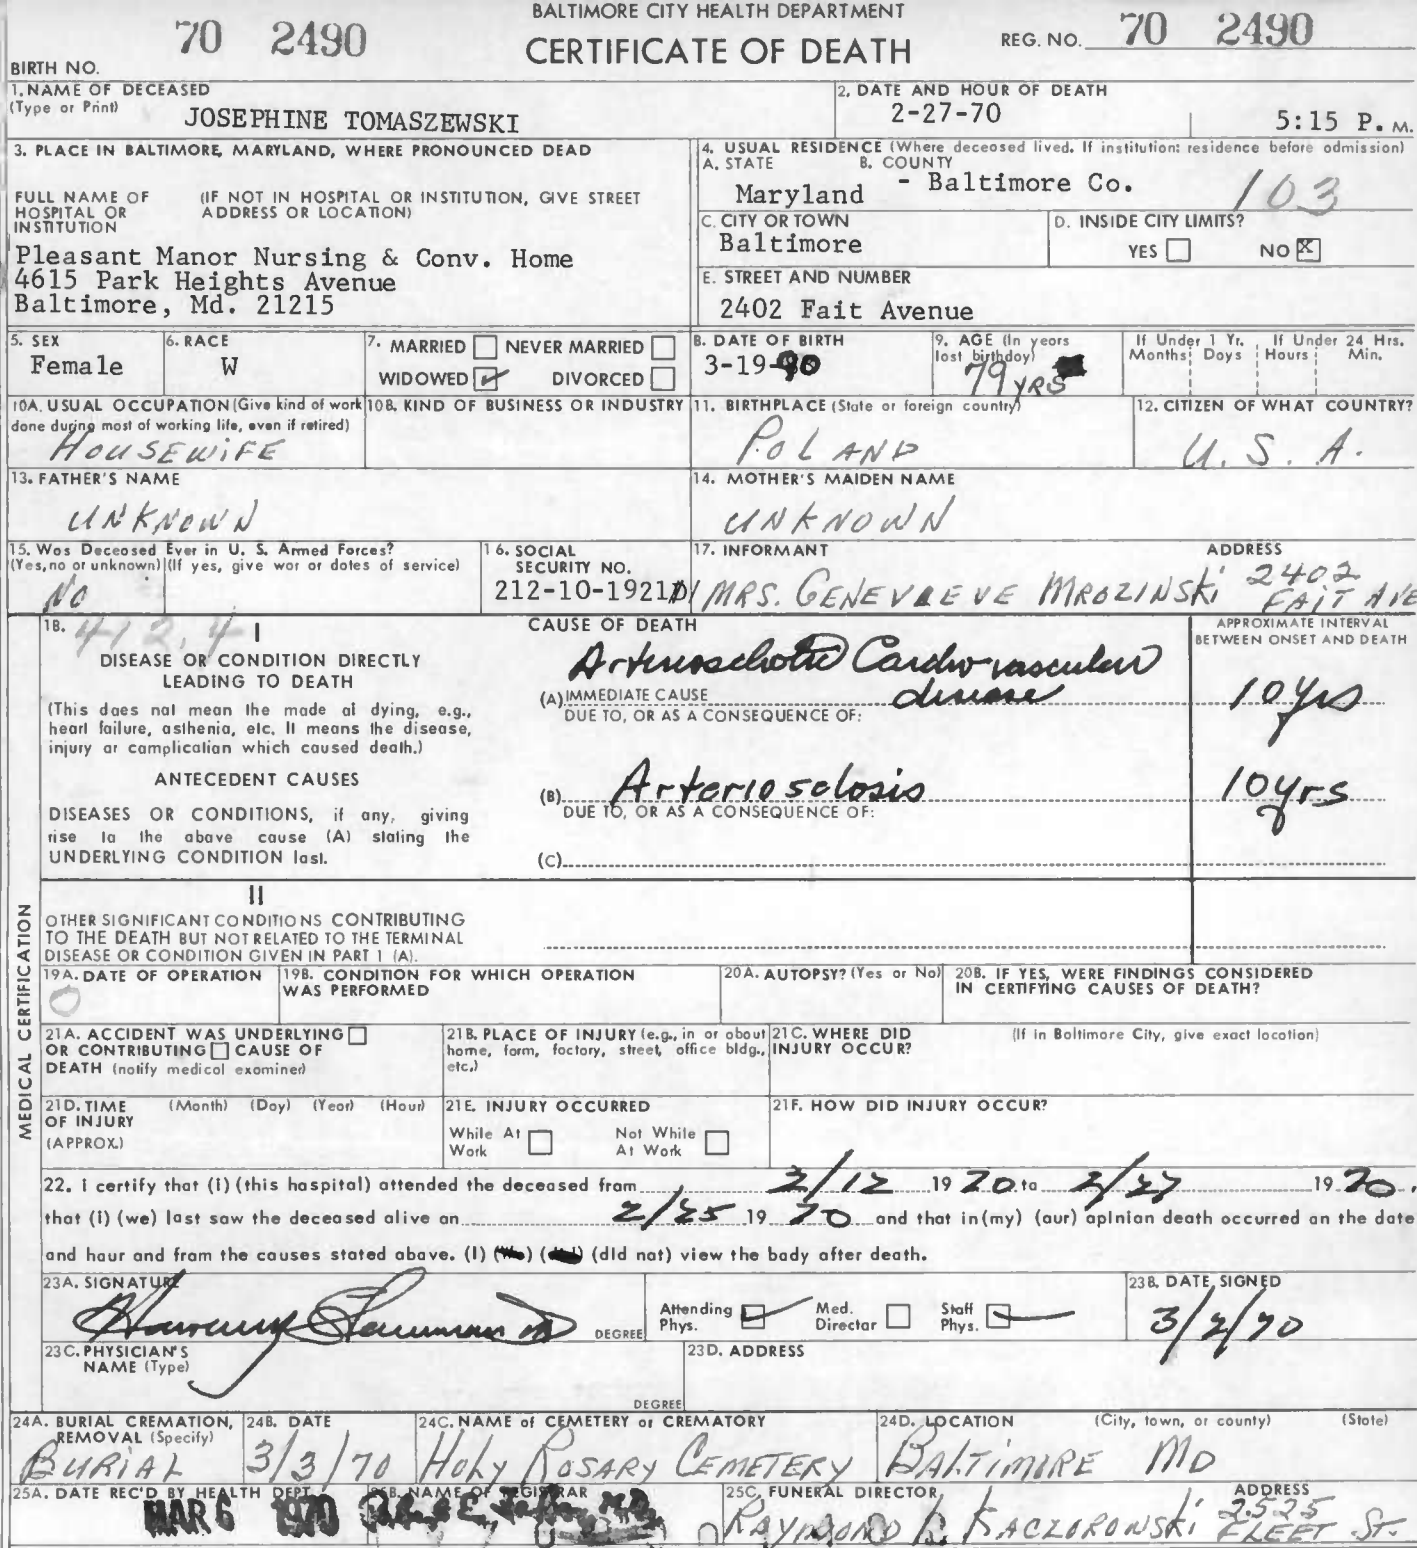 BALTIMORE CITY HEALTH DEPARTMENT
70 2490
CERTIFICATE OF DEATH
REG. NO. 70 2490
BIRTH NO.
1. NAME OF DECEASED
(Type or Print)
JOSEPHINE TOMASZEWSKI
2. DATE AND HOUR OF DEATH
2-27-70 5:15 P. M.
3. PLACE IN BALTIMORE, MARYLAND, WHERE PRONOUNCED DEAD
FULL NAME OF HOSPITAL OR INSTITUTION
(IF NOT IN HOSPITAL OR INSTITUTION, GIVE STREET ADDRESS OR LOCATION)
Pleasant Manor Nursing & Conv. Home
4615 Park Heights Avenue
Baltimore, Md. 21215
4. USUAL RESIDENCE (Where deceased lived. If institution: residence before admission)
A. STATE B. COUNTY
Maryland - Baltimore Co. 103
C. CITY OR TOWN
Baltimore
D. INSIDE CITY LIMITS?
YES NO X
E. STREET AND NUMBER
2402 Fait Avenue
5. SEX
Female
6. RACE
W
7. MARRIED NEVER MARRIED
WIDOWED ✓ DIVORCED
8. DATE OF BIRTH
3-19-90
9. AGE (In years last birthday)
79 YRS
If Under 1 Yr. If Under 24 Hrs.
Months Days Hours Min.
10A. USUAL OCCUPATION (Give kind of work done during most of working life, even if retired)
HOUSEWIFE
10B. KIND OF BUSINESS OR INDUSTRY
11. BIRTHPLACE (State or foreign country)
POLAND
12. CITIZEN OF WHAT COUNTRY?
U. S. A.
13. FATHER'S NAME
UNKNOWN
14. MOTHER'S MAIDEN NAME
UNKNOWN
15. Was Deceased Ever in U. S. Armed Forces?
(Yes, no or unknown) (If yes, give war or dates of service)
No
16. SOCIAL SECURITY NO.
212-10-1921D
17. INFORMANT ADDRESS
MRS. GENEVIEVE MROZINSKI 2402 FAIT AVE
18. 412.4 I
DISEASE OR CONDITION DIRECTLY
LEADING TO DEATH
(This does not mean the mode of dying, e.g.,
heart failure, asthenia, etc. It means the disease,
injury or complication which caused death.)
ANTECEDENT CAUSES
DISEASES OR CONDITIONS, if any, giving
rise to the above cause (A) stating the
UNDERLYING CONDITION last.
CAUSE OF DEATH
Arteriosclotic Cardio-vascular
(A) IMMEDIATE CAUSE disease
DUE TO, OR AS A CONSEQUENCE OF:
(B) Arterioselosis
DUE TO, OR AS A CONSEQUENCE OF:
(C)
APPROXIMATE INTERVAL
BETWEEN ONSET AND DEATH
10 yrs
10 yrs
II
OTHER SIGNIFICANT CONDITIONS CONTRIBUTING
TO THE DEATH BUT NOT RELATED TO THE TERMINAL
DISEASE OR CONDITION GIVEN IN PART 1 (A).
MEDICAL CERTIFICATION
19A. DATE OF OPERATION
0
19B. CONDITION FOR WHICH OPERATION WAS PERFORMED
20A. AUTOPSY? (Yes or No)
20B. IF YES, WERE FINDINGS CONSIDERED IN CERTIFYING CAUSES OF DEATH?
21A. ACCIDENT WAS UNDERLYING
OR CONTRIBUTING CAUSE OF
DEATH (notify medical examiner)
21B. PLACE OF INJURY (e.g., in or about home, farm, factory, street, office bldg., etc.)
21C. WHERE DID INJURY OCCUR?
(If in Baltimore City, give exact location)
21D. TIME OF INJURY (APPROX.)
(Month) (Day) (Year) (Hour)
21E. INJURY OCCURRED
While At Work Not While At Work
21F. HOW DID INJURY OCCUR?
22. I certify that (I) (this hospital) attended the deceased from 2/12 19 70 to 2/27 19 70,
that (I) (we) last saw the deceased alive on 2/25 19 70 and that in (my) (our) opinion death occurred on the date
and hour and from the causes stated above. (I) (did not) view the body after death.
23A. SIGNATURE
DEGREE
Attending Phys. ✓ Med. Director Staff Phys. ✓
23B. DATE SIGNED
3/2/70
23C. PHYSICIAN'S NAME (Type)
DEGREE
23D. ADDRESS
24A. BURIAL CREMATION, REMOVAL (Specify)
BURIAL
24B. DATE
3/3/70
24C. NAME of CEMETERY or CREMATORY
HOLY ROSARY CEMETERY
24D. LOCATION (City, town, or county) (State)
BALTIMORE MD
25A. DATE REC'D BY HEALTH DEPT.
MAR 6 1970
25B. NAME OF REGISTRAR
25C. FUNERAL DIRECTOR ADDRESS
RAYMOND KACZOROWSKI 2525 FLEET ST.